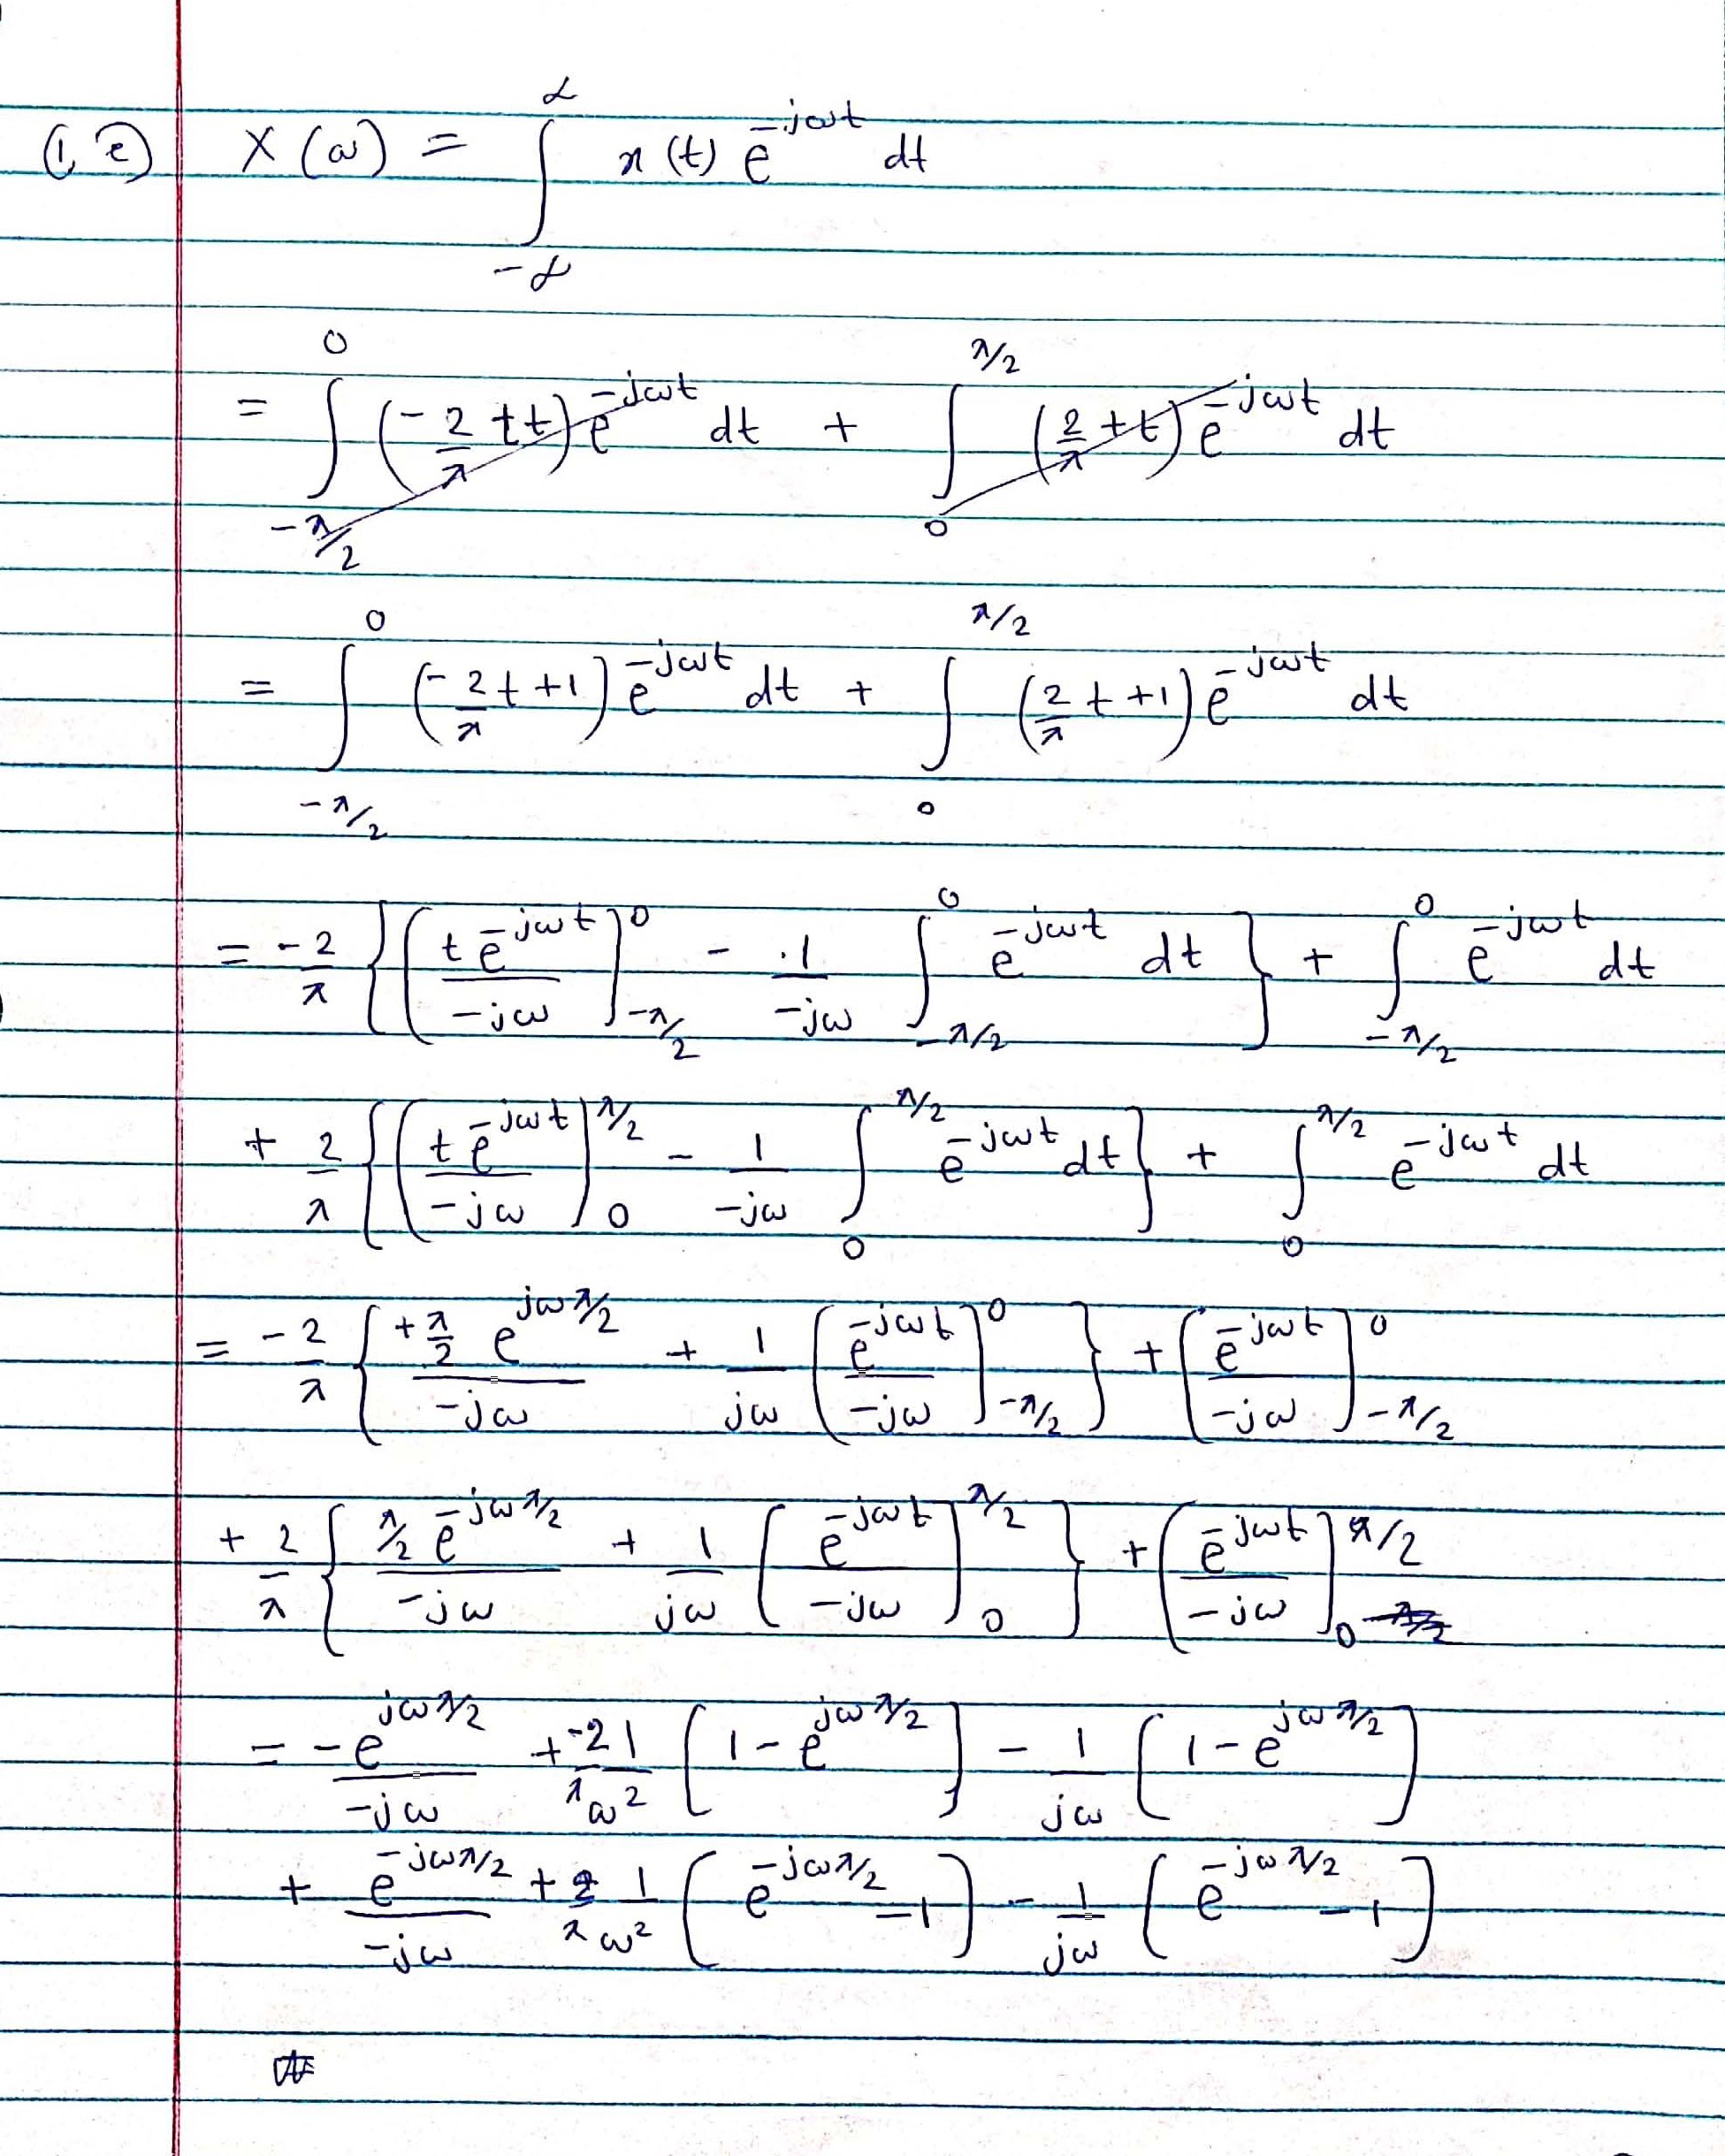 (1, e) X(ω) = ∫_{-∞}^{∞} x(t) e^{-jωt} dt
= ∫_{-π/2}^{0} (-2/π + t) e^{-jωt} dt + ∫_{0}^{π/2} (2/π + t) e^{-jωt} dt
= ∫_{-π/2}^{0} (-2/π t + 1) e^{-jωt} dt + ∫_{0}^{π/2} (2/π t + 1) e^{-jωt} dt
= -2/π { [t e^{-jωt} / -jω]_{-π/2}^{0} - 1/-jω ∫_{-π/2}^{0} e^{-jωt} dt } + ∫_{-π/2}^{0} e^{-jωt} dt
+ 2/π { [t e^{-jωt} / -jω]_{0}^{π/2} - 1/-jω ∫_{0}^{π/2} e^{-jωt} dt } + ∫_{0}^{π/2} e^{-jωt} dt
= -2/π { +π/2 e^{jωπ/2} / -jω + 1/jω [e^{-jωt} / -jω]_{-π/2}^{0} } + [e^{-jωt} / -jω]_{-π/2}^{0}
+ 2/π { π/2 e^{-jωπ/2} / -jω + 1/jω [e^{-jωt} / -jω]_{0}^{π/2} } + [e^{-jωt} / -jω]_{0}^{π/2}
= -e^{jωπ/2} / -jω + -2/π 1/ω² [1 - e^{jωπ/2}] - 1/jω [1 - e^{jωπ/2}]
+ e^{-jωπ/2} / -jω + 2/π 1/ω² [e^{-jωπ/2} - 1] - 1/jω [e^{-jωπ/2} - 1]